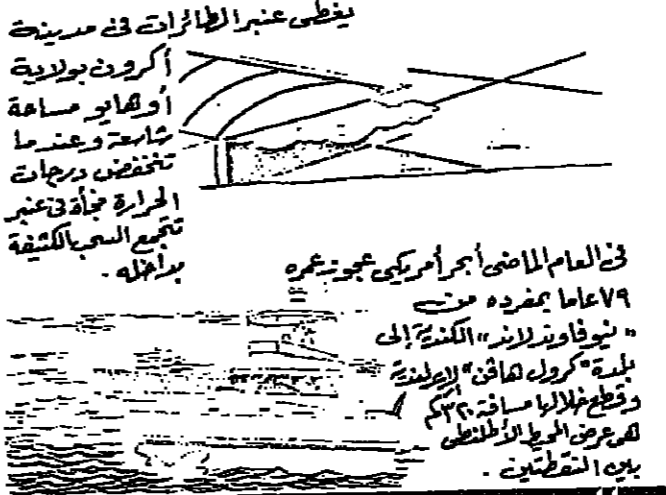 يغطى عنبر الطائرات فى مدينة
أكرون بولاية
أوهايو مساحة
شاسعة وعندما
تنخفض درجات
الحرارة فجأة فى عنبر
تتجمع السحب الكثيفة
بداخله .
فى العام الماضى أبحر أمريكى عجوز عمره
٧٩ عاما بمفرده من
" نيوفاوندلاند " الكندية إلى
بلدة " كرول هافن " الإيرلندية
وقطع خلالها مسافة كم
هى عرض المحيط الأطلنطى
بين النقطتين .